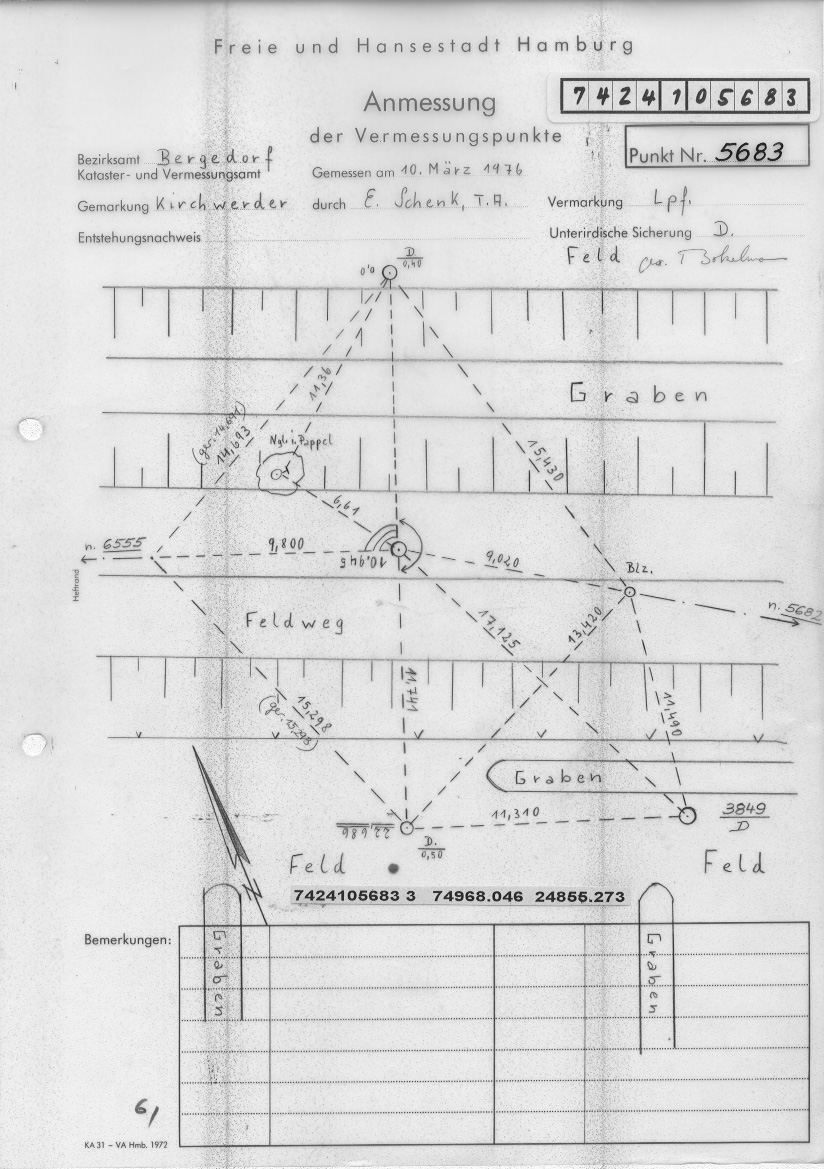 Freie und Hansestadt Hamburg
7424105683
Anmessung
der Vermessungspunkte
Punkt Nr. 5683
Bezirksamt Bergedorf
Kataster- und Vermessungsamt
Gemessen am 10. März 1976
Gemarkung Kirchwerder
durch E. Schenk, T.A.
Vermarkung Lpf.
Entstehungsnachweis
Unterirdische Sicherung D.
Feld
D
0,40
0,0
11,36
Graben
(ger. 14,691)
14,693
Ngl. i. Pappel
15,430
6,61
n. 6555
9,800
10,945
9,020
Blz.
Heftrand
n. 5682
Feldweg
17,125
13,420
11,741
15,298
(ger. 15,293)
11,490
Graben
11,310
3849
D
22,686
D.
0,50
Feld
Feld
7424105683 3 74968.046 24855.273
Bemerkungen:
Graben
Graben
6/
KA 31 – VA Hmb. 1972